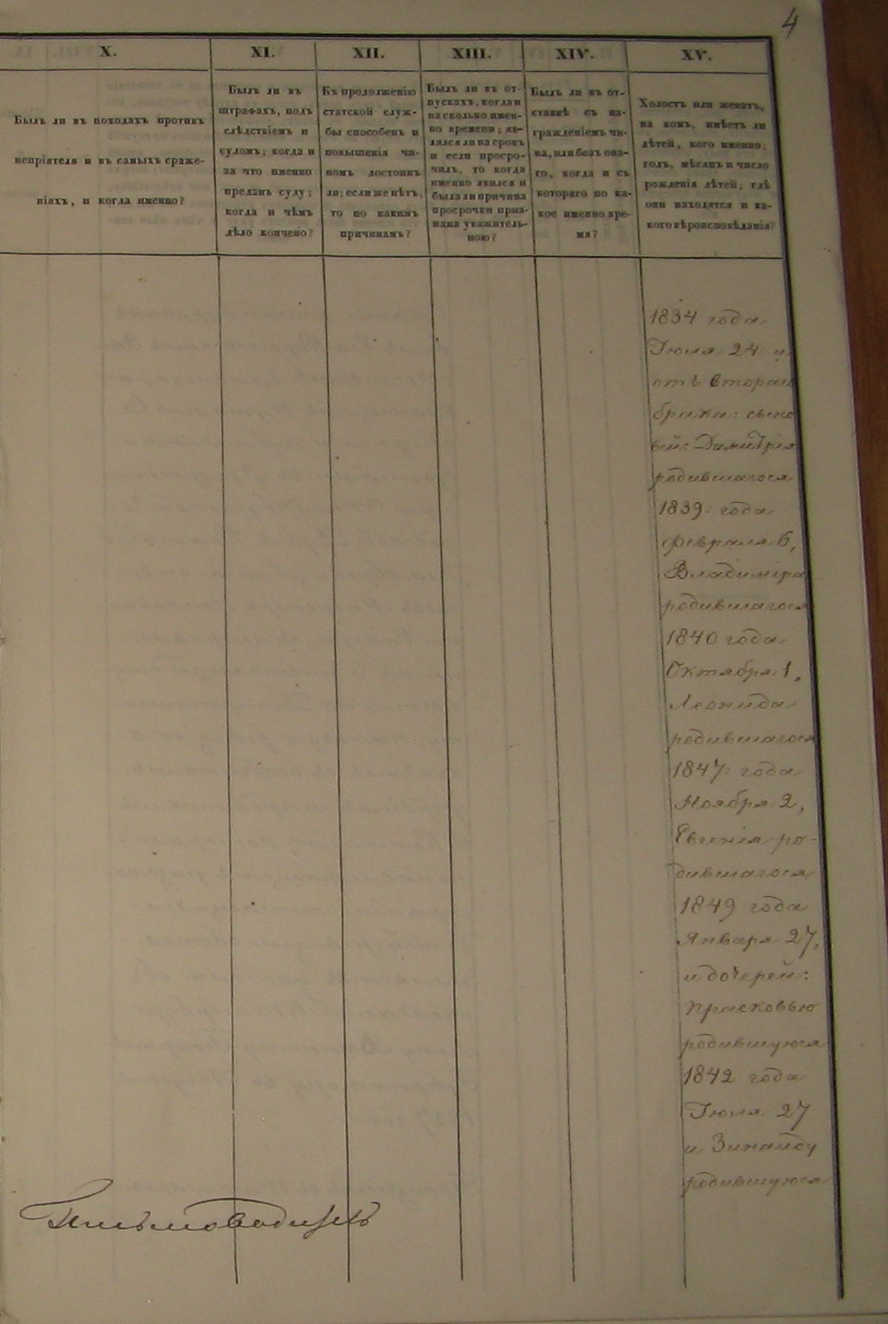 4
X.
XI.
XII.
XIII.
XIV.
XV.
Былъ ли въ походахъ противъ
непріятеля и въ самыхъ сраже-
ніяхъ, и когда именно?
Былъ ли въ
штрафахъ, подъ
слѣдствіемъ и
судомъ; когда и
за что именно
преданъ суду;
когда и чѣмъ
дѣло кончено?
Къ продолженію
статской служ-
бы способенъ и
повышенія чи-
номъ достоинъ
ли; если же нѣтъ,
то по какимъ
причинамъ?
Былъ ли въ от-
пускахъ, когда и
на сколько имен-
но времени; яв-
лялся ли на срокъ
и если просро-
чилъ, то когда
именно явился и
была ли причина
просрочки приз-
нана уважитель-
ною?
Былъ ли въ от-
ставкѣ съ на-
гражденіемъ чи-
на, или безъ она-
го, когда и съ
котораго по ка-
кое именно вре-
мя?
Холостъ или женатъ,
на комъ, имѣетъ ли
дѣтей, кого именно;
годъ, мѣсяцъ и число
рожденія дѣтей; гдѣ
они находятся и ка-
кого вѣроисповѣданія?
1834 года
Іюля 24 и
отъ втораго
брака: сыно
вей: Димитрія
родившагося
1839 года
февраля 6,
Владиміра
родившагося
1840 года
Октября 1,
Леонида
родившагося
1847 года
Ноября 2,
Евгенія ро-
дившагося
1849 года
Января 27,
и дочерей:
Прасковью
родившуюся
1842 года
Іюля 27
и Зинаиду
родившуюся
Письмоводитель